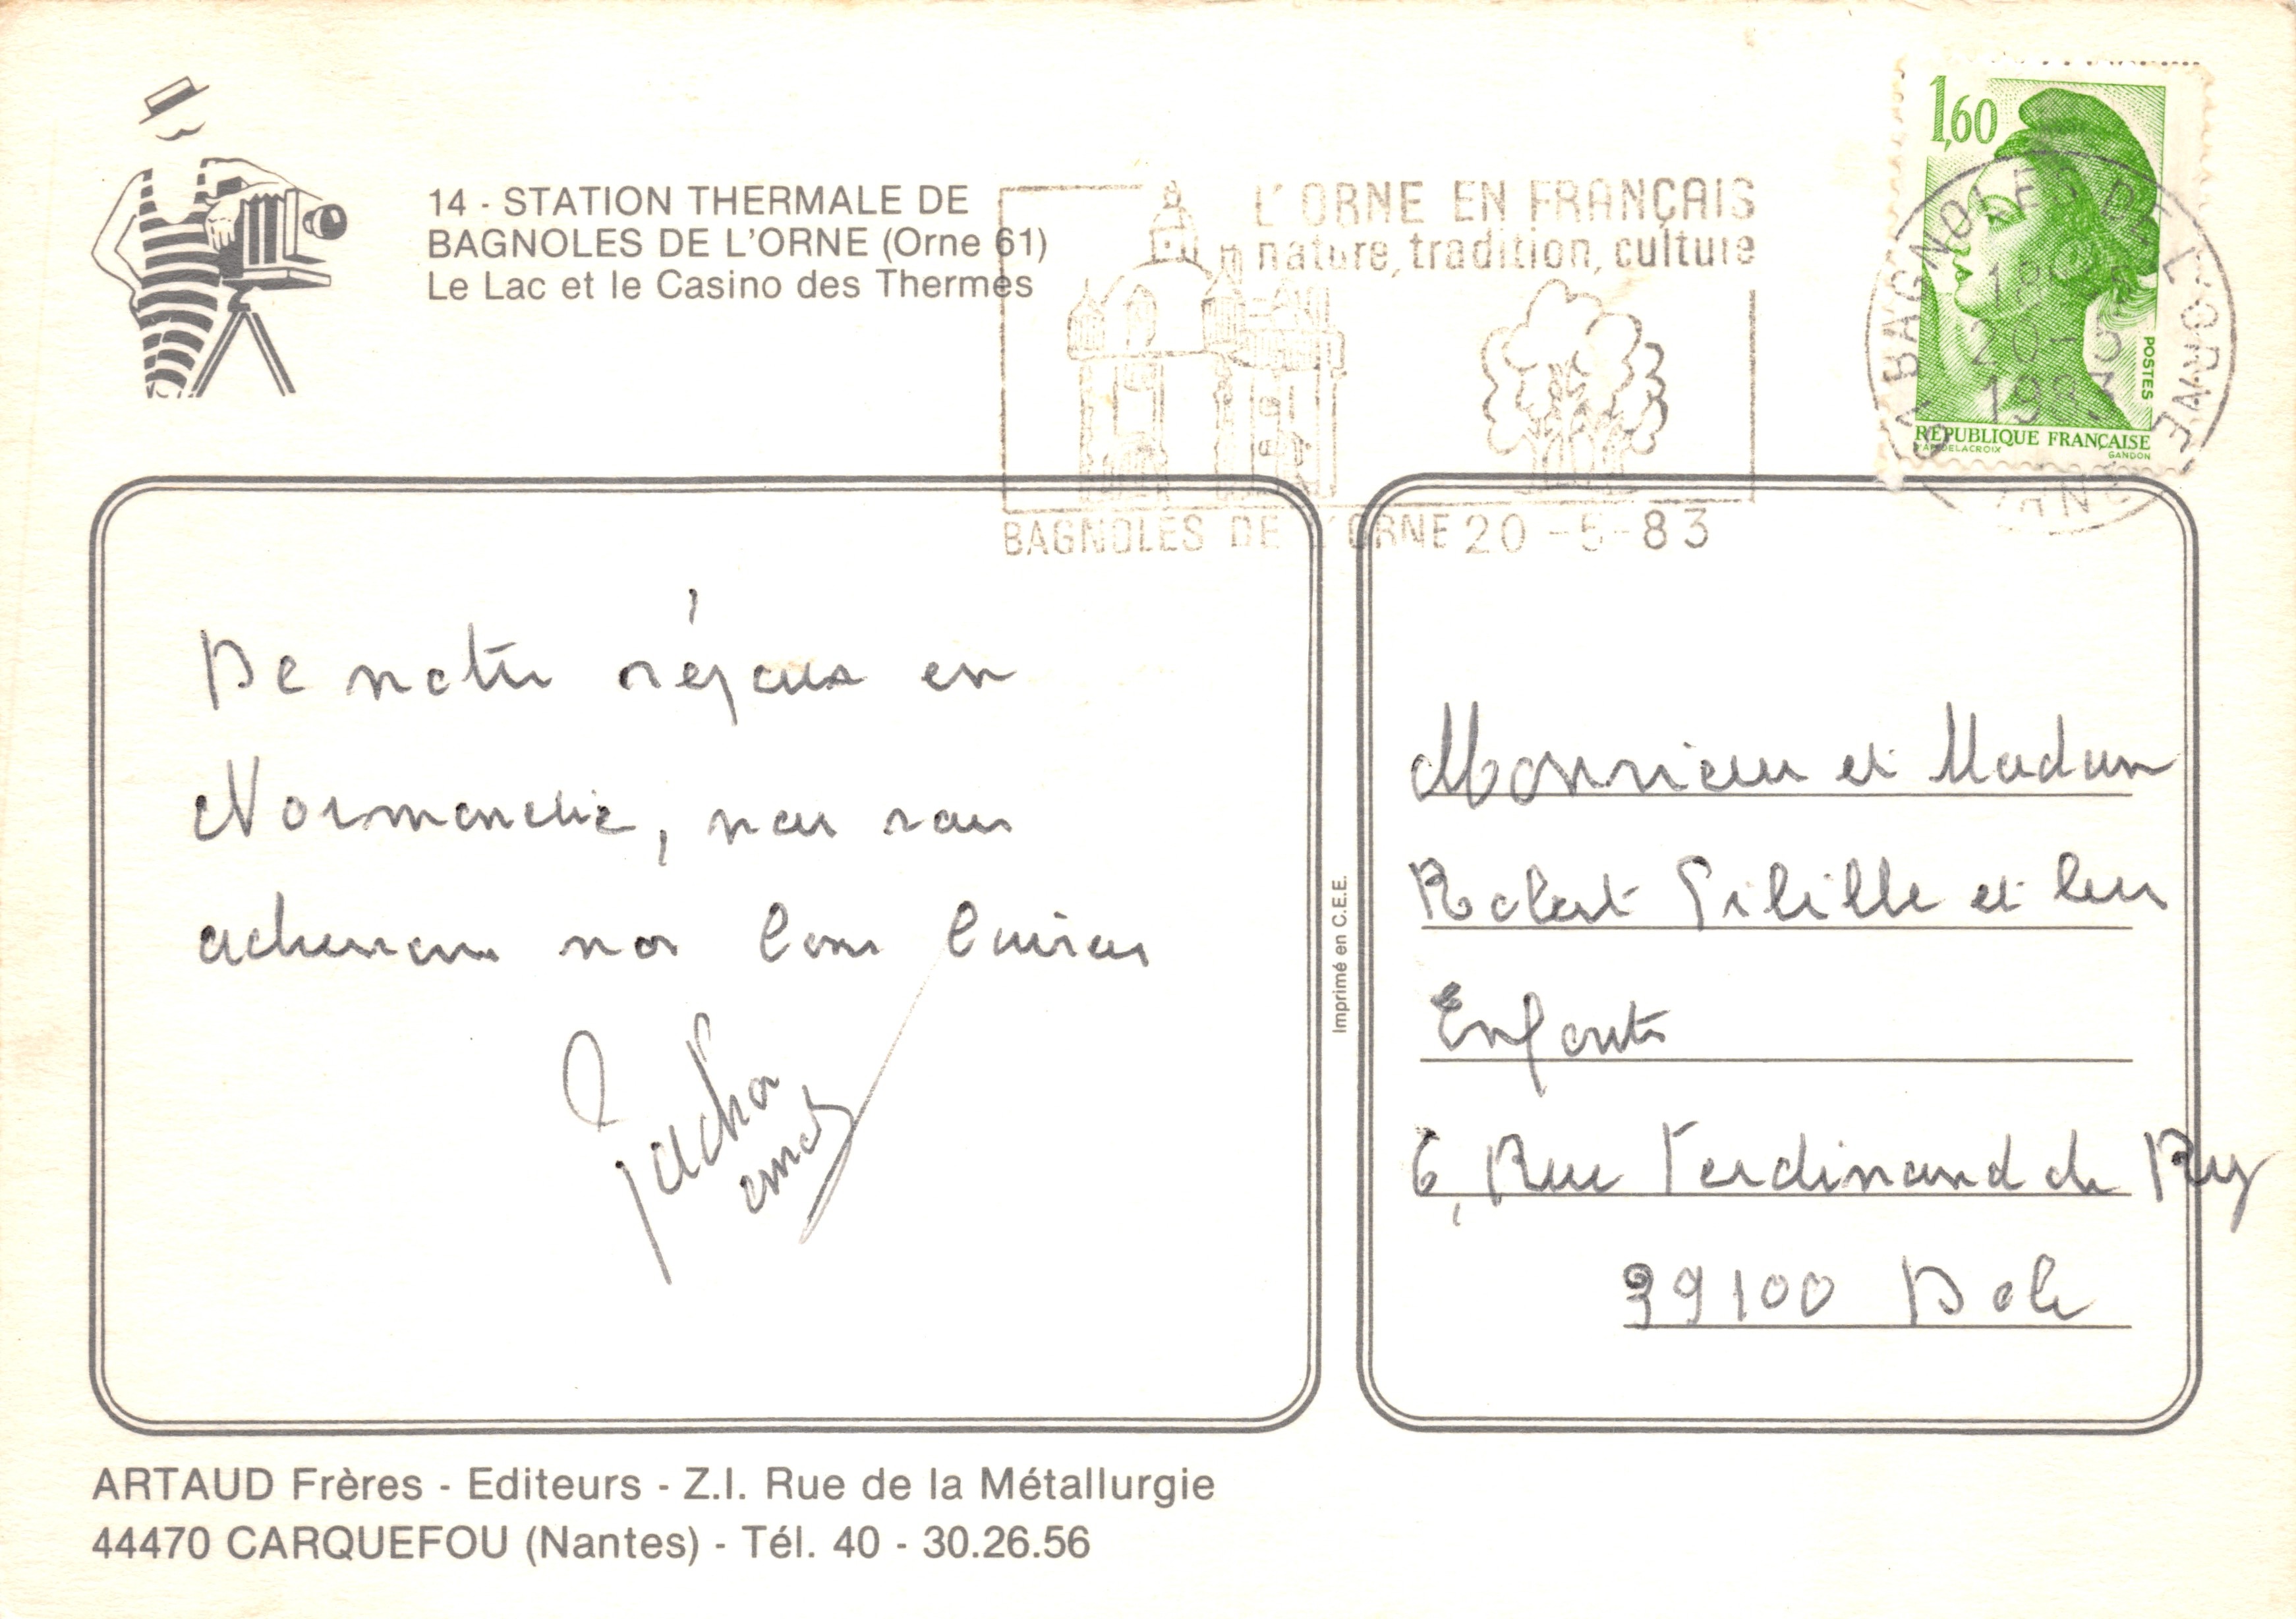 14 - STATION THERMALE DE
BAGNOLES DE L'ORNE (Orne 61)
Le Lac et le Casino des Thermes
L'ORNE EN FRANÇAIS
nature, tradition, culture
BAGNOLES DE L'ORNE 20-5-83
1,60
POSTES
REPUBLIQUE FRANÇAISE
D'AP. DELACROIX
GANDON
BAGNOLES DE L'ORNE
ORNE
18H
20-5
1983
De notre séjour en
Normandie, nous vous
adressons nos bons baisers
Monsieur et Madame
Robert et leurs
Enfants
6, Rue Ferdinand de Rye
39100 Dole
Imprimé en C.E.E.
ARTAUD Frères - Editeurs - Z.I. Rue de la Métallurgie
44470 CARQUEFOU (Nantes) - Tél. 40 - 30.26.56